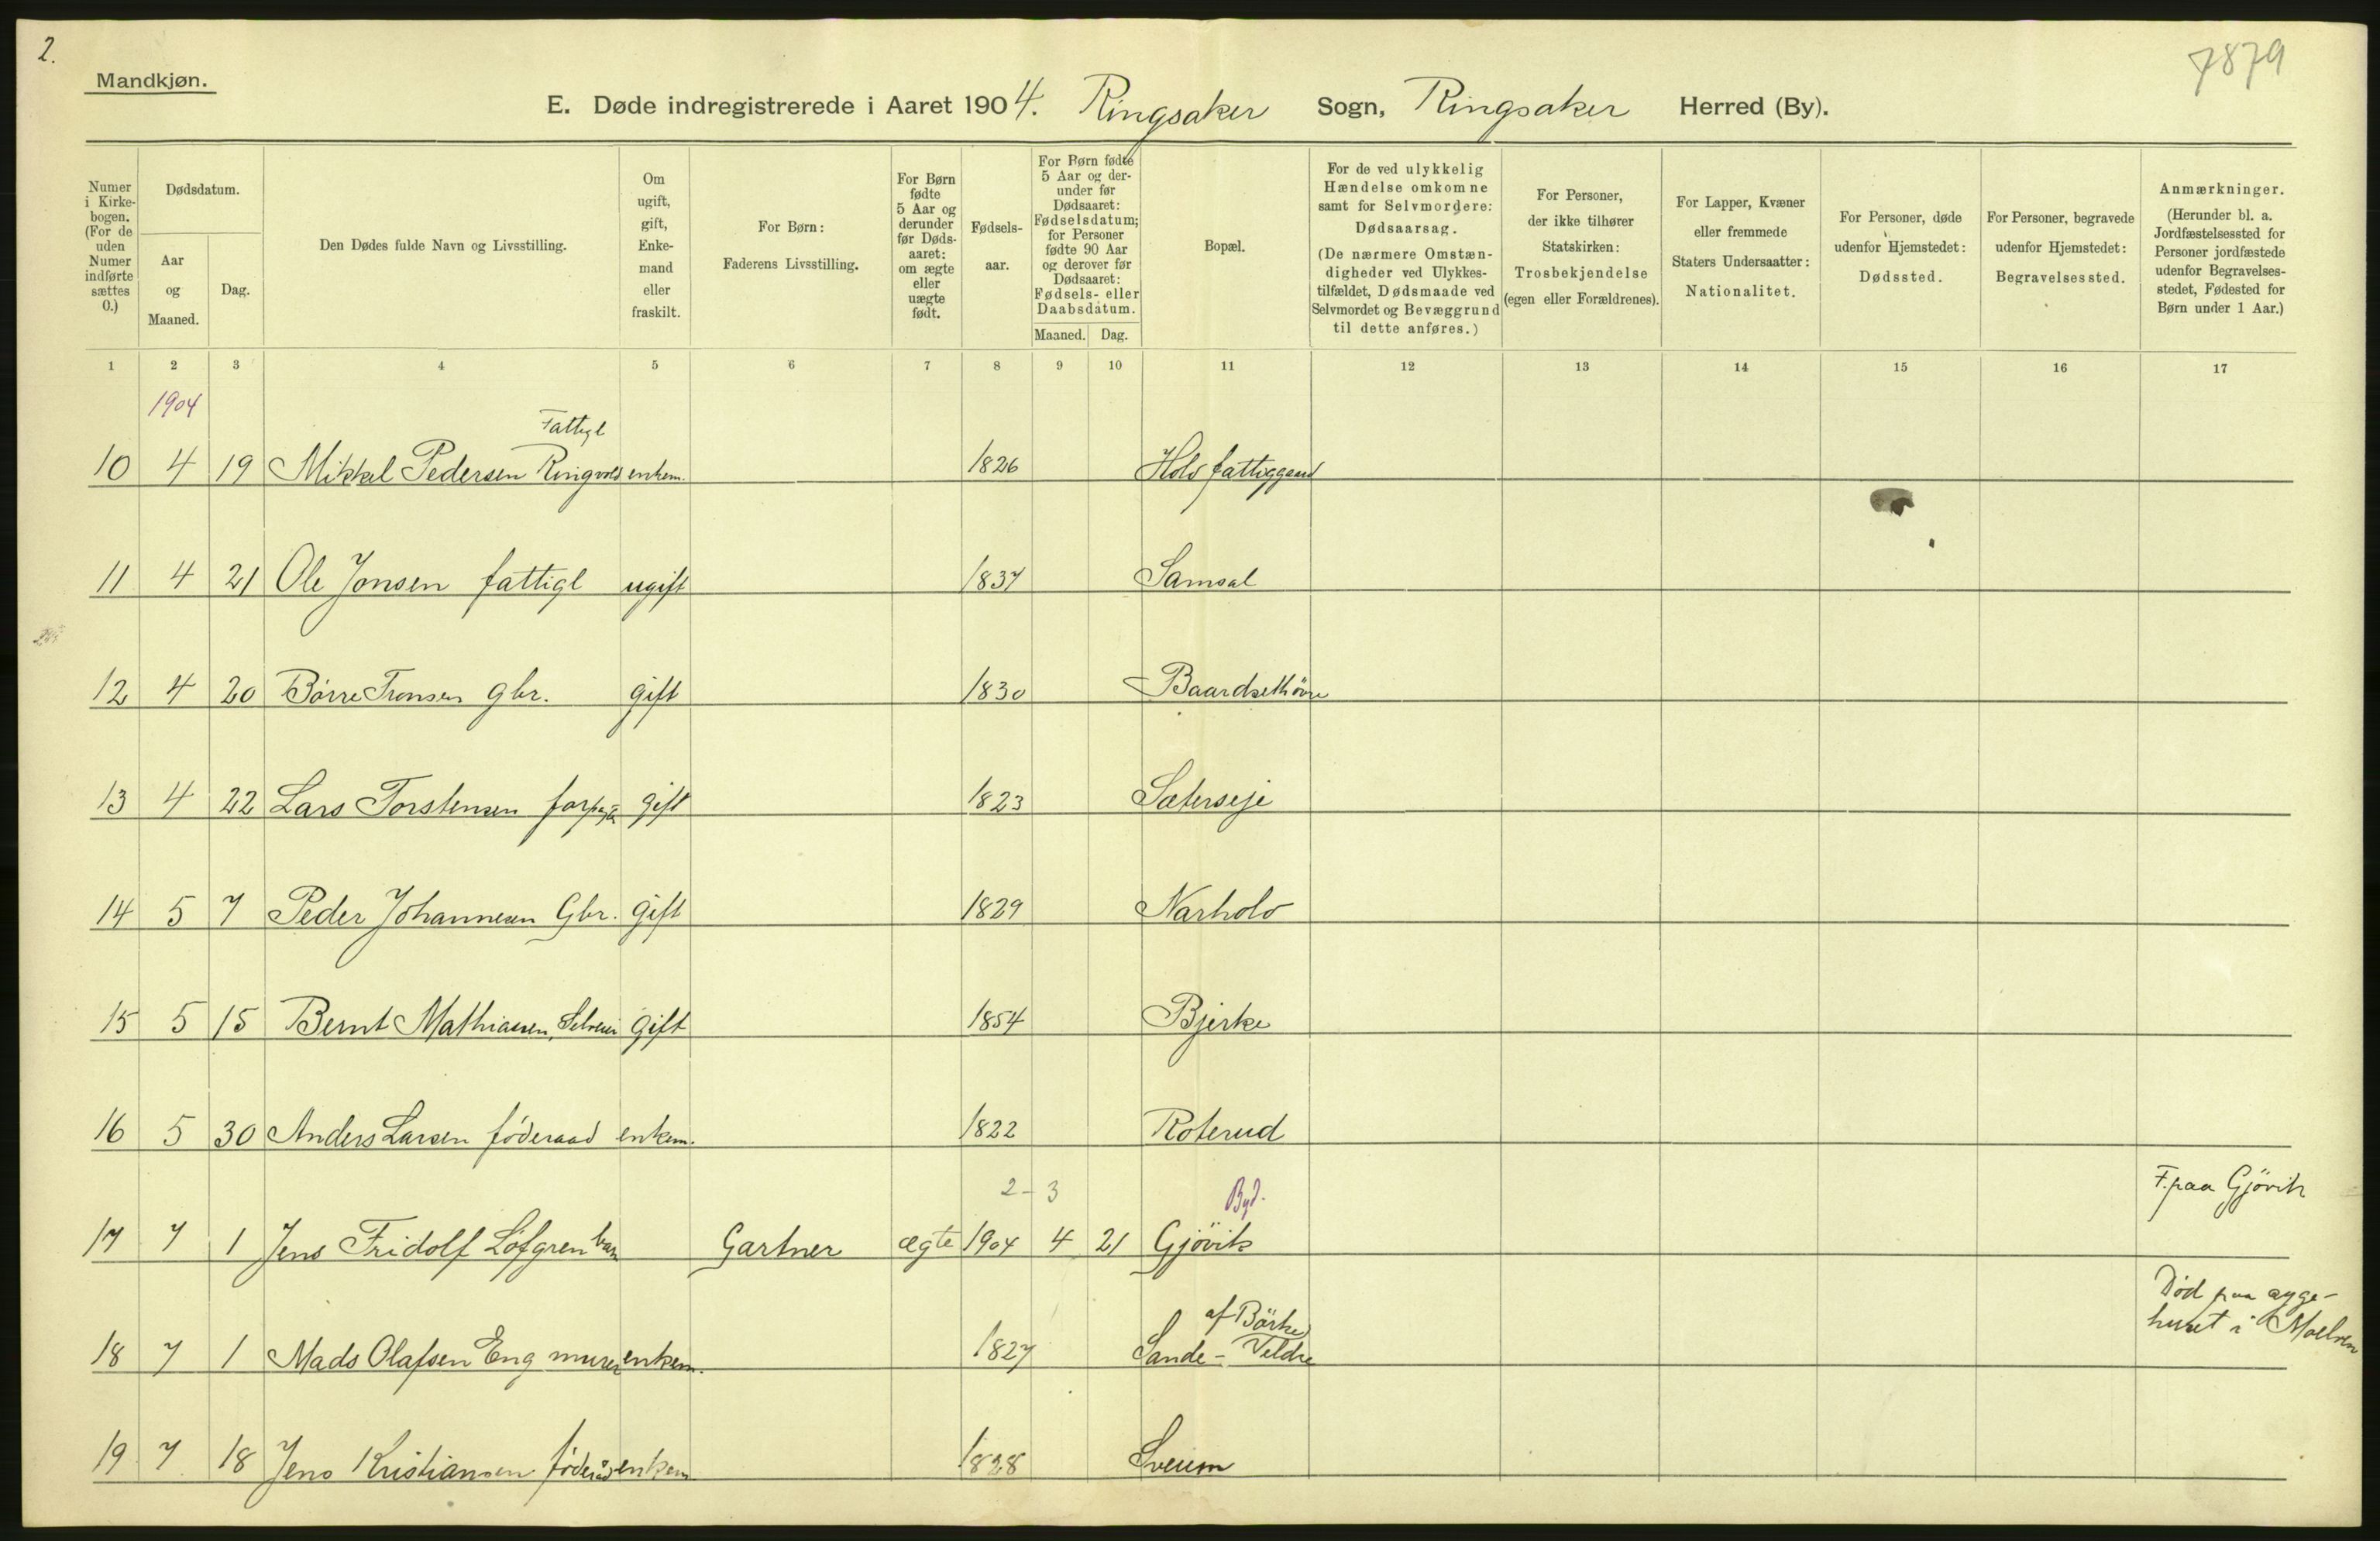 2.
7879
Mandkjøn.
E. Døde indregistrerede i Aaret 1904. Ringsaker Sogn, Ringsaker Herred (By).
Numer i Kirke-bogen. (For de uden Numer indførte sættes 0.)
Dødsdatum.
Aar og Maaned.
Dag.
Den Dødes fulde Navn og Livsstilling.
Om ugift, gift, Enke-mand eller fraskilt.
For Børn: Faderens Livsstilling.
For Børn fødte 5 Aar og derunder før Døds-aaret: om ægte eller uægte født.
Fødsels-aar.
For Børn fødte 5 Aar og der-under før Dødsaaret: Fødselsdatum; for Personer fødte 90 Aar og derover før Dødsaaret: Fødsels- eller Daabsdatum.
Maaned. Dag.
Bopæl.
For de ved ulykkelig Hændelse omkomne samt for Selvmordere: Dødsaarsag. (De nærmere Omstæn-digheder ved Ulykkes-tilfældet, Dødsmaade ved Selvmordet og Bevæggrund til dette anføres.)
For Personer, der ikke tilhører Statskirken: Trosbekjendelse (egen eller Forældrenes).
For Lapper, Kvæner eller fremmede Staters Undersaatter: Nationalitet.
For Personer, døde udenfor Hjemstedet: Dødssted.
For Personer, begravede udenfor Hjemstedet: Begravelsessted.
Anmærkninger. (Herunder bl. a. Jordfæstelsessted for Personer jordfæstede udenfor Begravelses-stedet, Fødested for Børn under 1 Aar.)
1 2 3 4 5 6 7 8 9 10 11 12 13 14 15 16 17
1904
Fattigl
10 4 19 Mikkel Pedersen Ringvold enkem. 1826 Holo fattiggaard
11 4 21 Ole Jonsen fattigl ugift 1837 Samsal
12 4 20 Börre Tronsen gbr. gift 1830
13 4 22 Lars Torstensen gift 1823 Sæterseje
14 5 7 Peder Johannesen Gbr. gift 1829 Narholo
15 5 15 Bernt Mathiasen, Selveier gift 1854 Bjerke
16 5 30 Anders Larsen föderaad enkem. 1822 Roterud
2-3 Byd. F. paa Gjövik
17 7 1 Jens Fridolf Löfgren barn Gartner ægte 1904 4 21 Gjövik
af Börke Död paa
18 7 1 Mads Olafsen Eng murer enkem. 1827 Sande - Veldre huset i Moelven
19 7 18 Jens Kristiansen föderåd enkem 1828 Sveum